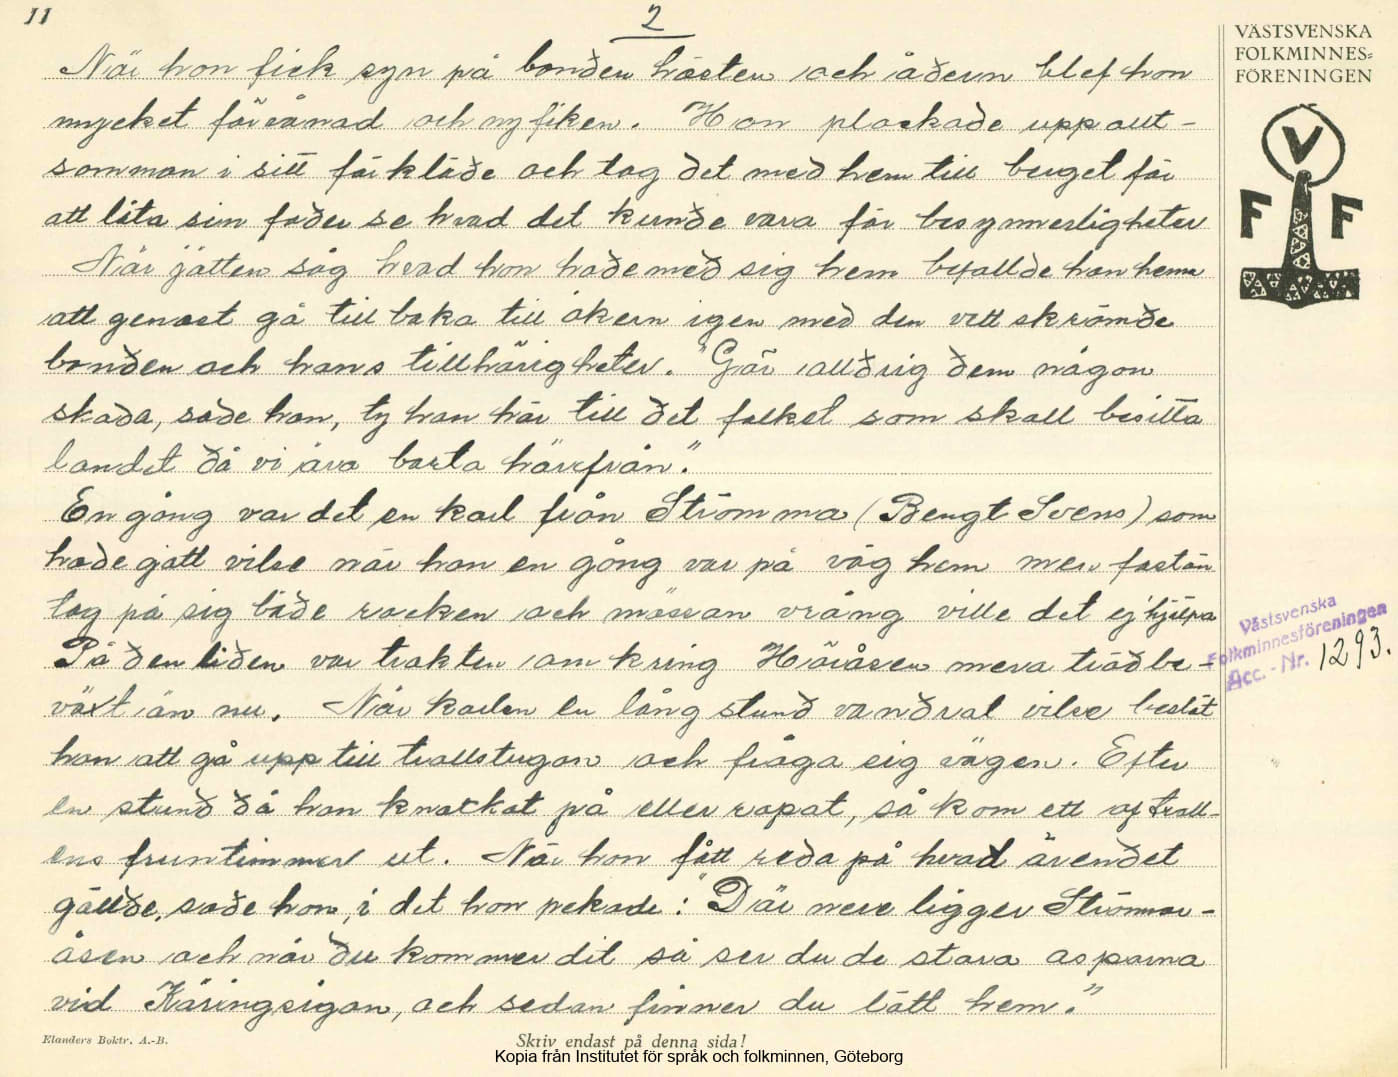 11
2
När hon fick syn på bonden hästen och ådern blef hon
mycket förvånad och nyfiken. Hon plockade upp allt-
somman i sitt förkläde och tog det med hem till berget för
att låta sin fader se hvad det kunde vara för besynnerligheter
När jätten såg hvad hon hade med sig hem befallde han henne
att genast gå till baka till åkern igen med den vettskrämde
bonden och hans tillhörigheter. "Gör alldrig dem någon
skada, sade han, ty han hör till det folket som skall besitta
landet då vi äro borta härifrån."
En gång var det en karl från Strömma (Bengt Svens) som
hade gått vilse när han en gång var på väg hem men fastän
tog på sig både rocken och mössan vrång ville det ej hjälpa
På den tiden var trakten omkring Höråsen mera trädbe-
växt än nu. När karlen en lång stund vandrat vilse beslöt
han att gå upp till trollstugan och fråga sig vägen. Efter
en stund då han knackat på eller ropat, så kom ett af troll-
ens fruntimmer ut. När hon fått reda på hvad ärendet
gällde, sade hon, i det hon pekade: "Där nere ligger Strömma-
åsen och när du kommer dit så ser du de stora asparna
vid Käringsigan, och sedan finner du lätt hem."
VÄSTSVENSKA
FOLKMINNES=
FÖRENINGEN
V
F F
Västsvenska
Folkminnesföreningen
Acc. - Nr. 1293.
Elanders Boktr. A.-B.
Skriv endast på denna sida!
Kopia från Institutet för språk och folkminnen, Göteborg